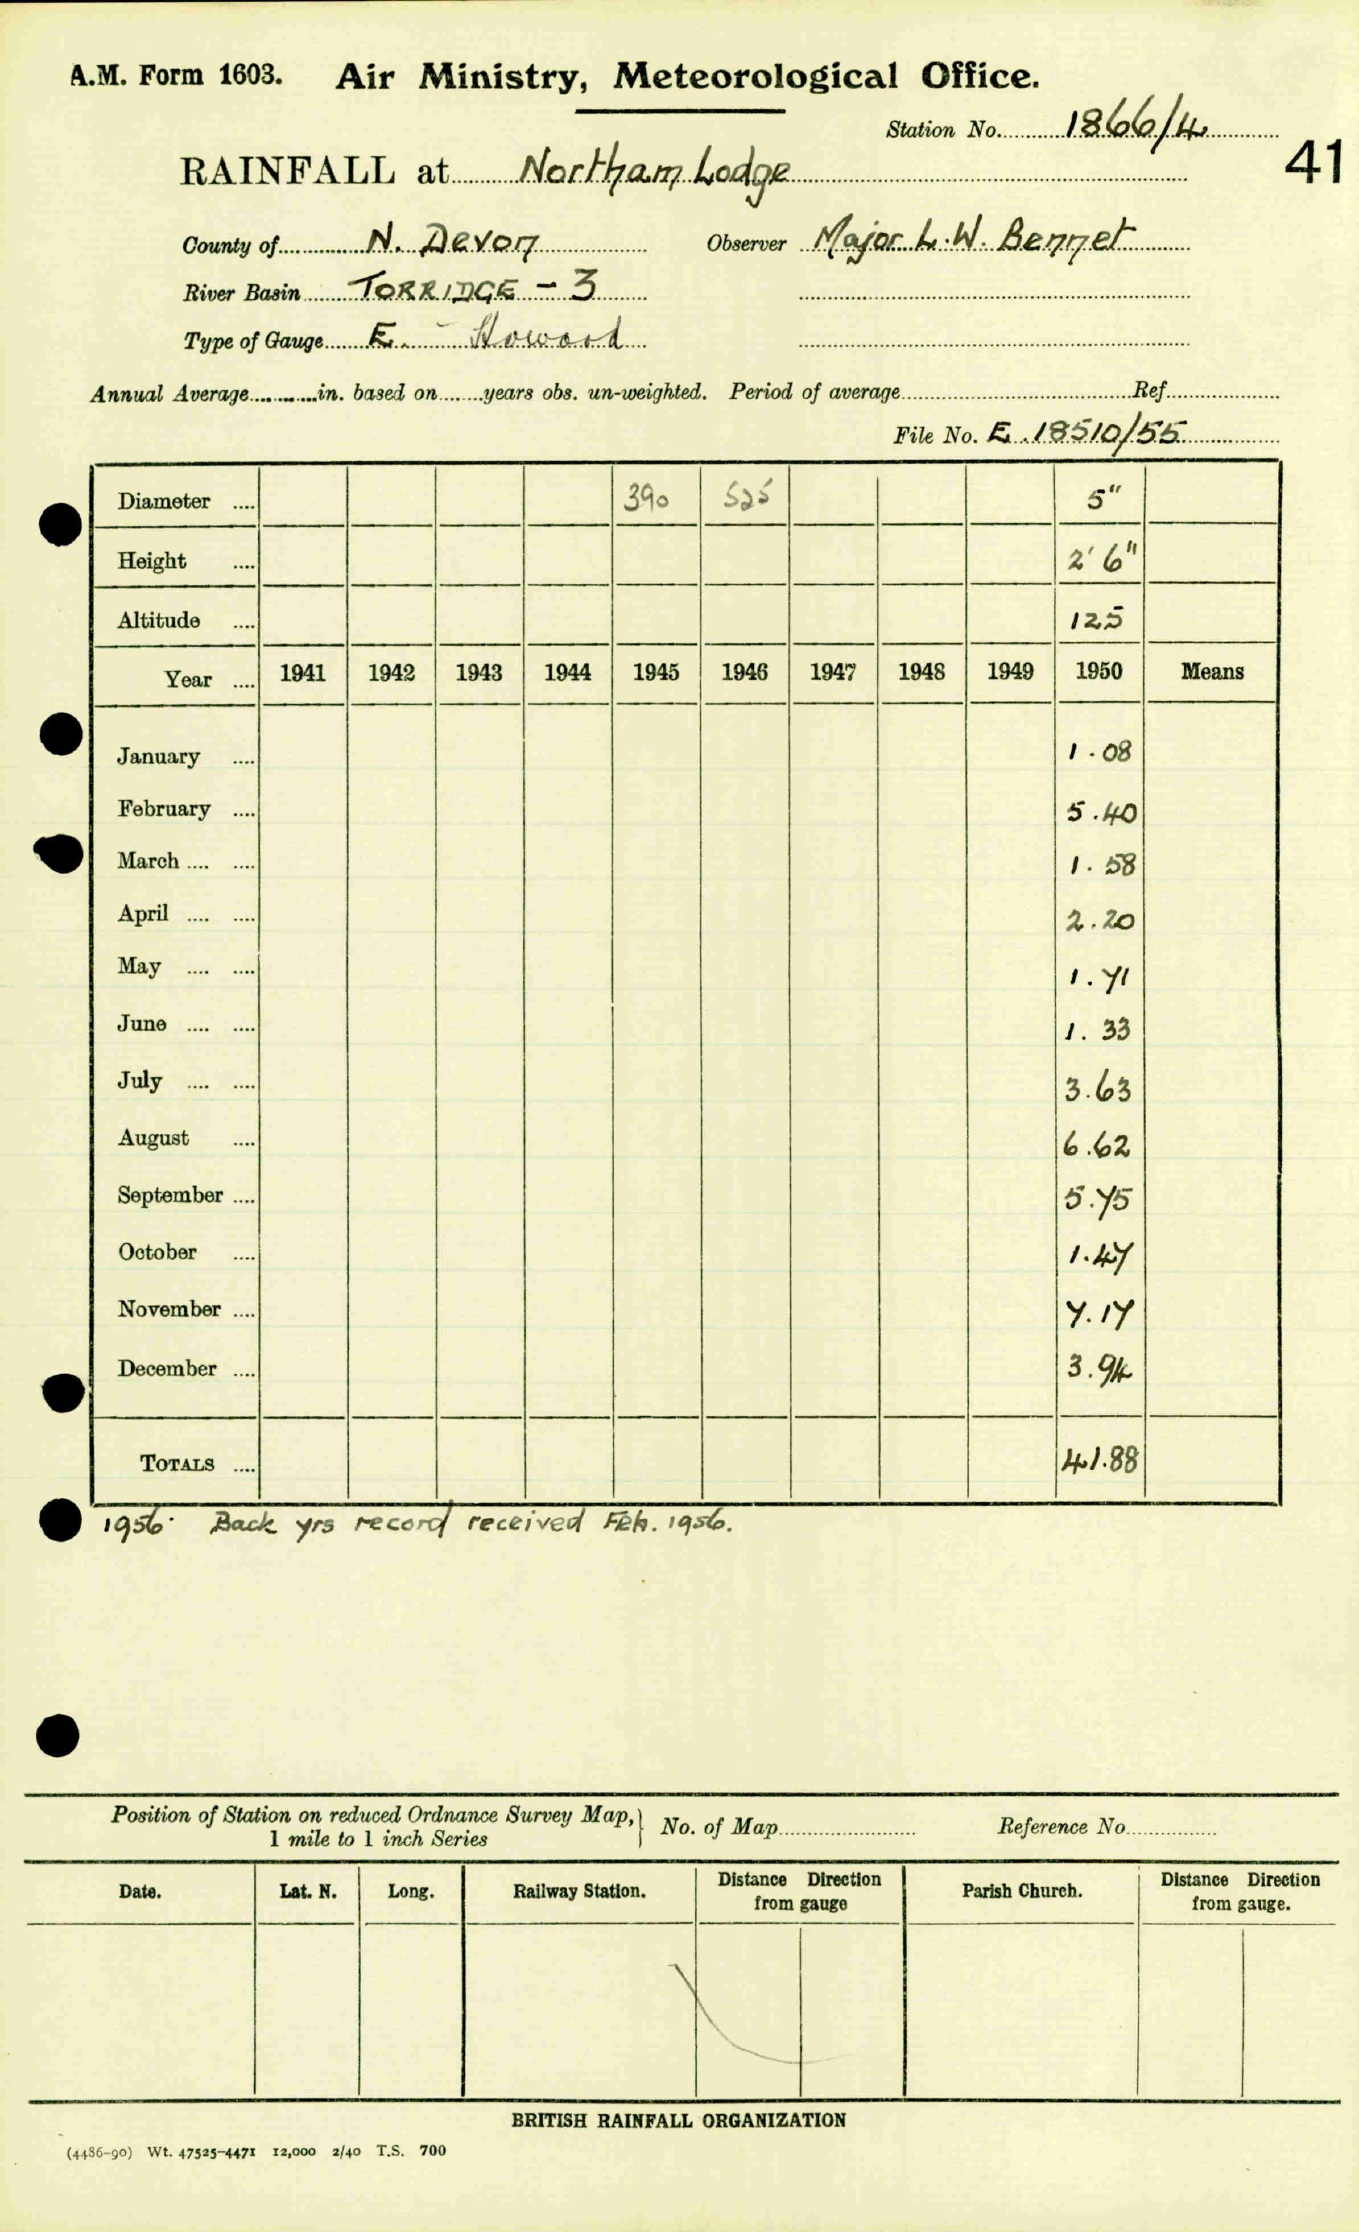 A.M. Form 1603. Air Ministry, Meteorological Office.
Station No. 1866/4
41
RAINFALL at Northam Lodge
County of N. Devon Observer Major L. W. Bennet
River Basin TORRIDGE - 3
Type of Gauge E. - Howard
Annual Average in. based on years obs. un-weighted. Period of average Ref.
File No. E.18510/55
Diameter .... 390 525 5"
Height .... 2' 6"
Altitude .... 125
Year .... 1941 1942 1943 1944 1945 1946 1947 1948 1949 1950 Means
January .... 1.08
February .... 5.40
March .... .... 1.58
April .... .... 2.20
May .... .... 1.71
June .... .... 1.33
July .... .... 3.63
August .... 6.62
September .... 5.75
October .... 1.47
November .... 7.17
December .... 3.94
TOTALS .... 41.88
1956. Back yrs record received Feb. 1956.
Position of Station on reduced Ordnance Survey Map,
1 mile to 1 inch Series
No. of Map Reference No.
Date. Lat. N. Long. Railway Station. Distance Direction from gauge Parish Church. Distance Direction from gauge.
BRITISH RAINFALL ORGANIZATION
(4486-90) Wt. 47525-4471 12,000 2/40 T.S. 700